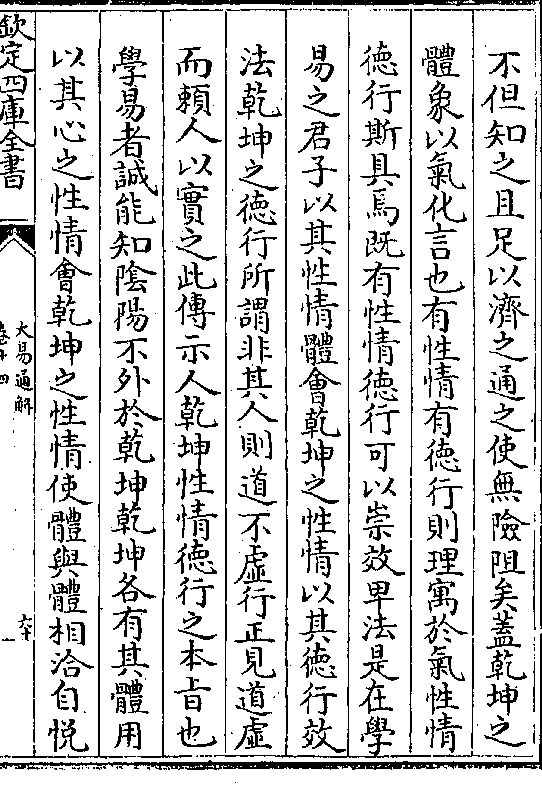 不但知之且足以濟之通之使無險阻矣蓋乾坤之
體象以氣化言也有性情有德行則理寓於氣性情
德行斯具焉既有性情德行可以崇效卑法是在學
易之君子以其性情體會乾坤之性情以其德行效
法乾坤之德行所謂非其人則道不虛行正見道虛
而賴人以實之此傳示人乾坤性情德行之本旨也
學易者誠能知陰陽不外於乾坤乾坤各有其體用
以其心之性情會乾坤之性情使體與體相洽自悅
欽定四庫全書
大易通解
卷十四
六十一